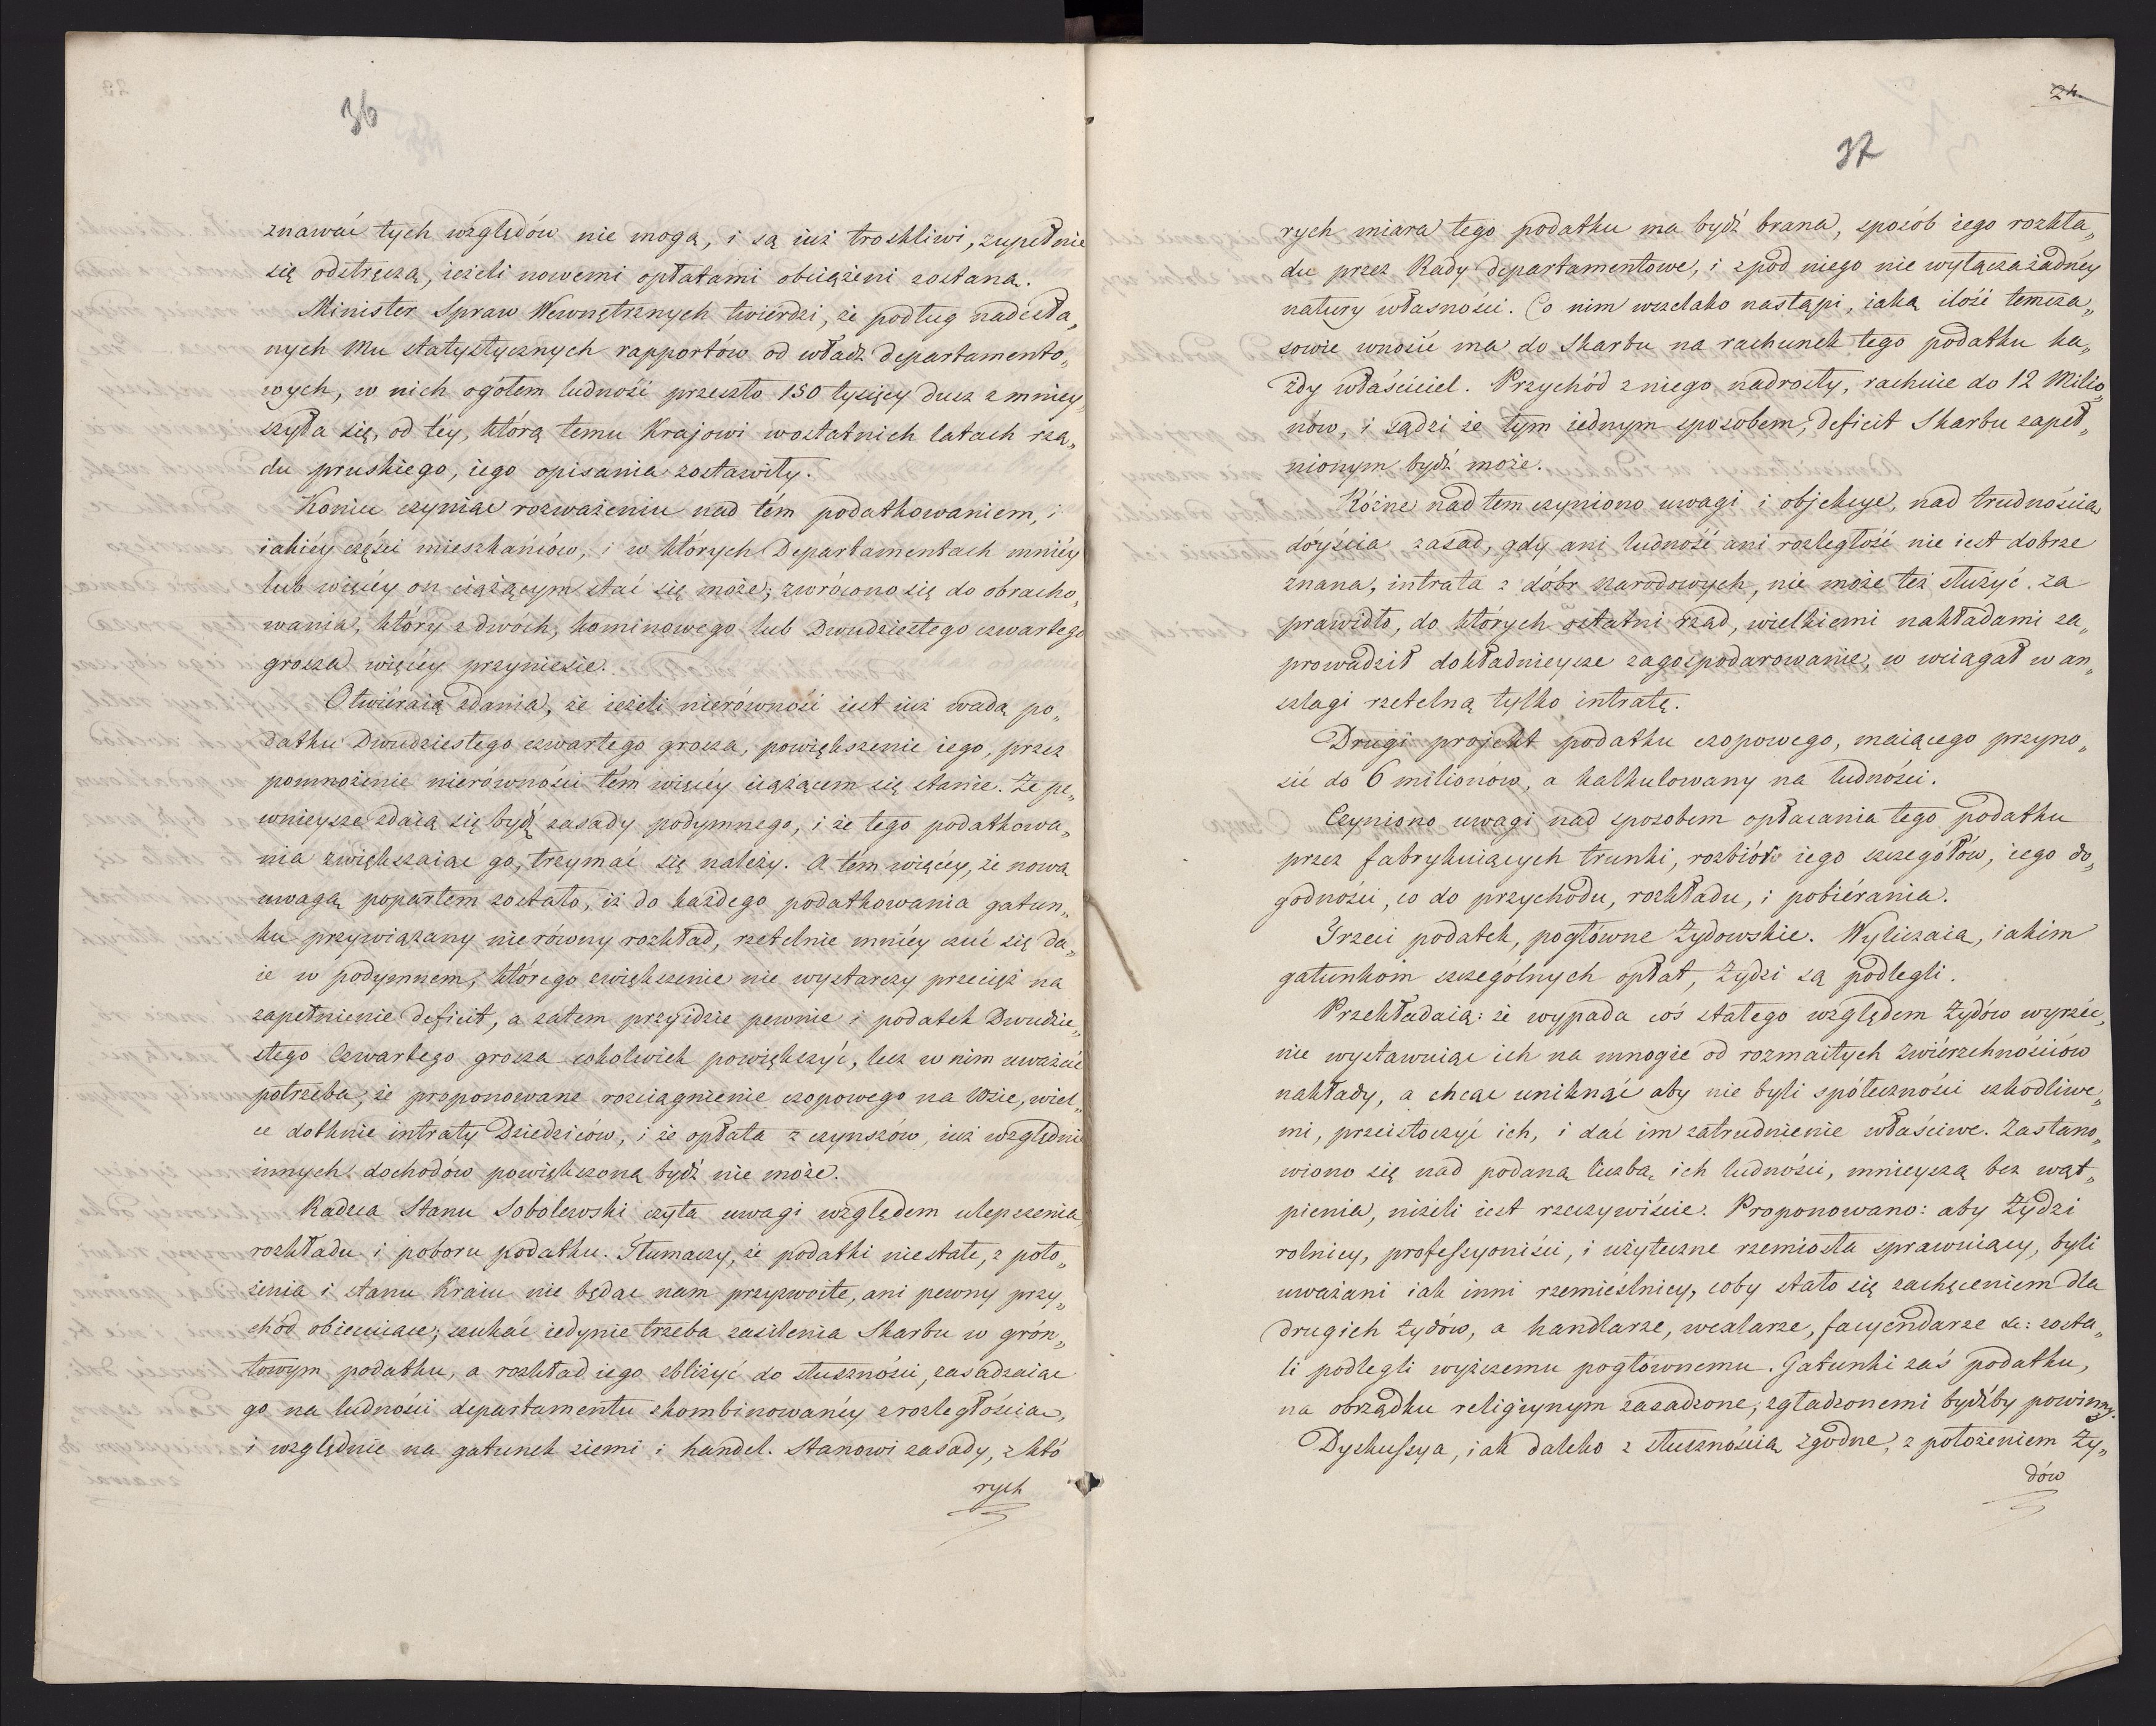 36
znawać tych względów nie mogą, i są iuż troskliwi, zupełnie
się odstręczą, ieżeli nowemi opłatami obciążeni zostaną.
Minister Spraw Wewnętrznych twierdzi, że podług nadesła„
nych Mu statystycznych rapportów od władz departamento„
wych, w nich ogółem ludność przeszło 150 tysięcy dusz zmniey„
szyła się, od téy, którą temu Krajowi w ostatnich latach rzą„
du pruskiego, iego opisania zostawiły.
Koniec czyniąc rozważeniu nad tém podatkowaniem, i
iakiéy części mieszkańców, i w których Departamentach mniéy
lub więcéy on ciążącym stać się może; zwrócono się do obracho„
wania, który z dwóch, kominowego lub Dwudziestego czwartego
grosza więcéy przyniesie.
Otwiéraią zdania, że ieżeli nierówność iest iuż wadą po„
datku Dwudziestego czwartego grosza, powiększenie iego, przez
pomnożenie nierówności tém więcéy ciążącem się stanie. Że pe„
wnieysze zdaią się bydź zasady podymnego, i że tego podatkowa„
nia zwiększaiąc go, trzymać się należy. A tém więcéy, że nową
uwagą popartem zostało, iż do każdego podatkowania gatun„
ku przywiązany nierówny rozkład, rzetelnie mniéy czuć się da„
ie w podymnem, którego zwiększenie nie wystarczy przecięż na
zapełnienie deficit, a zatem przyidzie pewnie i podatek Dwudzie„
stego Czwartego grosza cokolwiek powiększyć, lecz w nim uważać
potrzeba, że proponowane rozciągnienie czopowego na Wsie, wiel„
ce dotknie intraty Dziedziców, i że opłata z czynszów, iuż względnie
innych dochodów powiększoną bydź nie może.
Radzca Stanu Sobolewski czyta uwagi względem ulepszenia
rozkładu i poboru podatku. Tłumaczy, że podatki niestałe, z poło„
żenia i stanu Kraiu nie będąc nam przyzwoite, ani pewny przy„
chód obiecuiące; szukać iedynie trzeba zasilenia Skarbu w grón„
towym podatku, a rozkład iego zbliżyć do słuszności, zasadzaiąc
go na ludności departamentu skombinowanéy z rozległością,
i względnie na gatunek ziemi i handel. Stanowi zasady, z któ
rych
24.
37
rych miara tego podatku ma bydź brana, sposób iego rozkła„
du przez Rady departamentowe, i zpod niego nie wyłącza żadnéy
natury własności. Co nim wszelako nastąpi, iaką ilość tymcza„
sowie wnosić ma do Skarbu na rachunek tego podatku ka„
żdy właściciel. Przychód z niego nadrosły, rachuie do 12 Milio„
nów, i sądzi że tym iednym sposobem, deficit Skarbu zapeł„
nionym bydź może.
Różne nad tem czyniono uwagi i objekcye, nad trudnością
dóyścia zasad, gdy ani ludność ani rozległość nie iest dobrze
znana, intrata z dóbr narodowych, nie może też służyć za
prawidło, do których ostatni rząd, wielkiemi nakładami za„
prowadził dokładnieysze zagospodarowanie, w wciągał w an„
szlagi rzetelną tylko intratę.
Drugi projekt podatku czopowego, maiącego przyno„
sić do 6 milionów, a kalkulowany na ludności.
Czyniono uwagi nad sposobem opłacania tego podatku
przez fabrykuiących trunki, rozbiór iego szczegółów, iego do„
godności, co do przychodu, rozkładu, i pobiérania.
Trzeci podatek, pogłówne Żydowskie. Wyliczaią, iakim
gatunkom szczególnych opłat, Żydzi są podlegli.
Przekładaią: że wypada coś stałego względem Żydów wyrzéc,
nie wystawuiąc ich na mnogie od rozmaitych Zwiérzchnościów
nakłady, a chcąc uniknąć aby nie byli spółeczności szkodliwe„
mi, przeistoczyć ich, i dać im zatrudnienie właściwe. Zastano„
wiono się nad podaną liczbą ich ludności, mnieyszą bez wąt„
pienia, niżeli iest rzeczywiście. Proponowano: aby Żydzi
rolnicy, professyoniści, i użyteczne rzemiosła sprawuiący, byli
uważani iak inni rzemieślnicy, coby stało się zachęceniem dla
drugich Żydów, a handlarze, wexlarze, facyendarze &c: zosta„
li podlegli wyższemu pogłównemu. Gatunki zaś podatku,
na obrządku religiynym zasadzone, zgładzonemi bydźby powinny.
Dyskussya, iak daleko z słusznością zgodne, z położeniem Ży„
dów